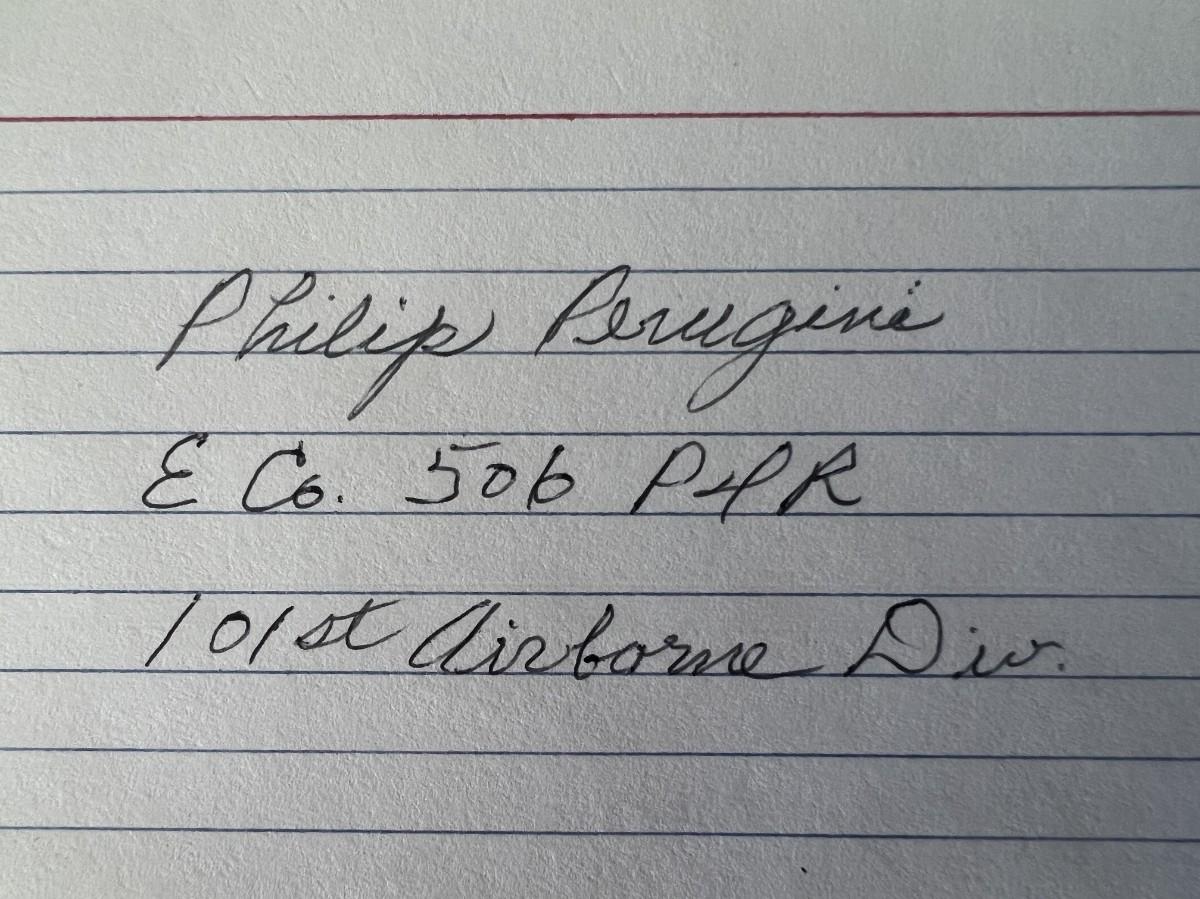 Philip Perugini
E Co. 506 PIR
101st Airborne Div.